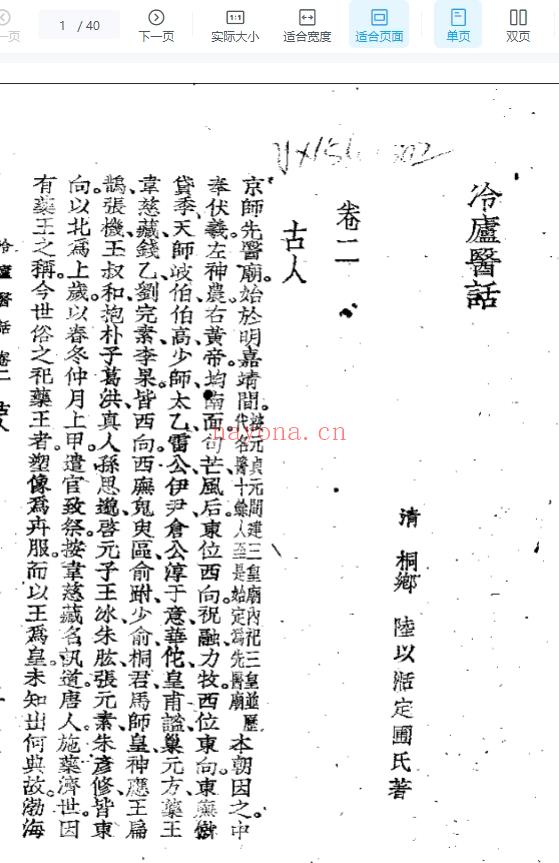 一页
1 / 40
下一页
实际大小
适合宽度
适合页面
单页
双页
冷廬醫話
清 桐鄉 陸以湉定圃氏 著
卷二
古人
京師先醫廟。始於明嘉靖間。按元貞元間建三皇廟內祀三皇並歷代名醫十餘人至是始定爲先醫廟 本朝因之。中
奉伏羲。左神農。右黃帝。均南面。句芒風后東位西向。祝融力牧西位東向。東廡僦
貸季、天師岐伯、伯高、少師、太乙、雷公、伊尹、倉公淳于意、華佗、皇甫謐、巢元方、藥王
韋慈藏、錢乙、劉完素、李杲、皆西向。西廡鬼臾區、俞跗、少俞、桐君、馬師皇、神應王扁
鵲、張機、王叔和、抱朴子葛洪、真人孫思邈、啓元子王冰、朱肱、張元素、朱彥修、皆東
向。以北爲上。歲以春冬仲月上甲。遣官致祭。按韋慈藏名訊道。唐人。施藥濟世。因
有藥王之稱。今世俗之祀藥王者。塑像爲卉服。而以王爲皇。未知出何典故。渤海
冷廬醫話 卷二 古人
nayona.cn